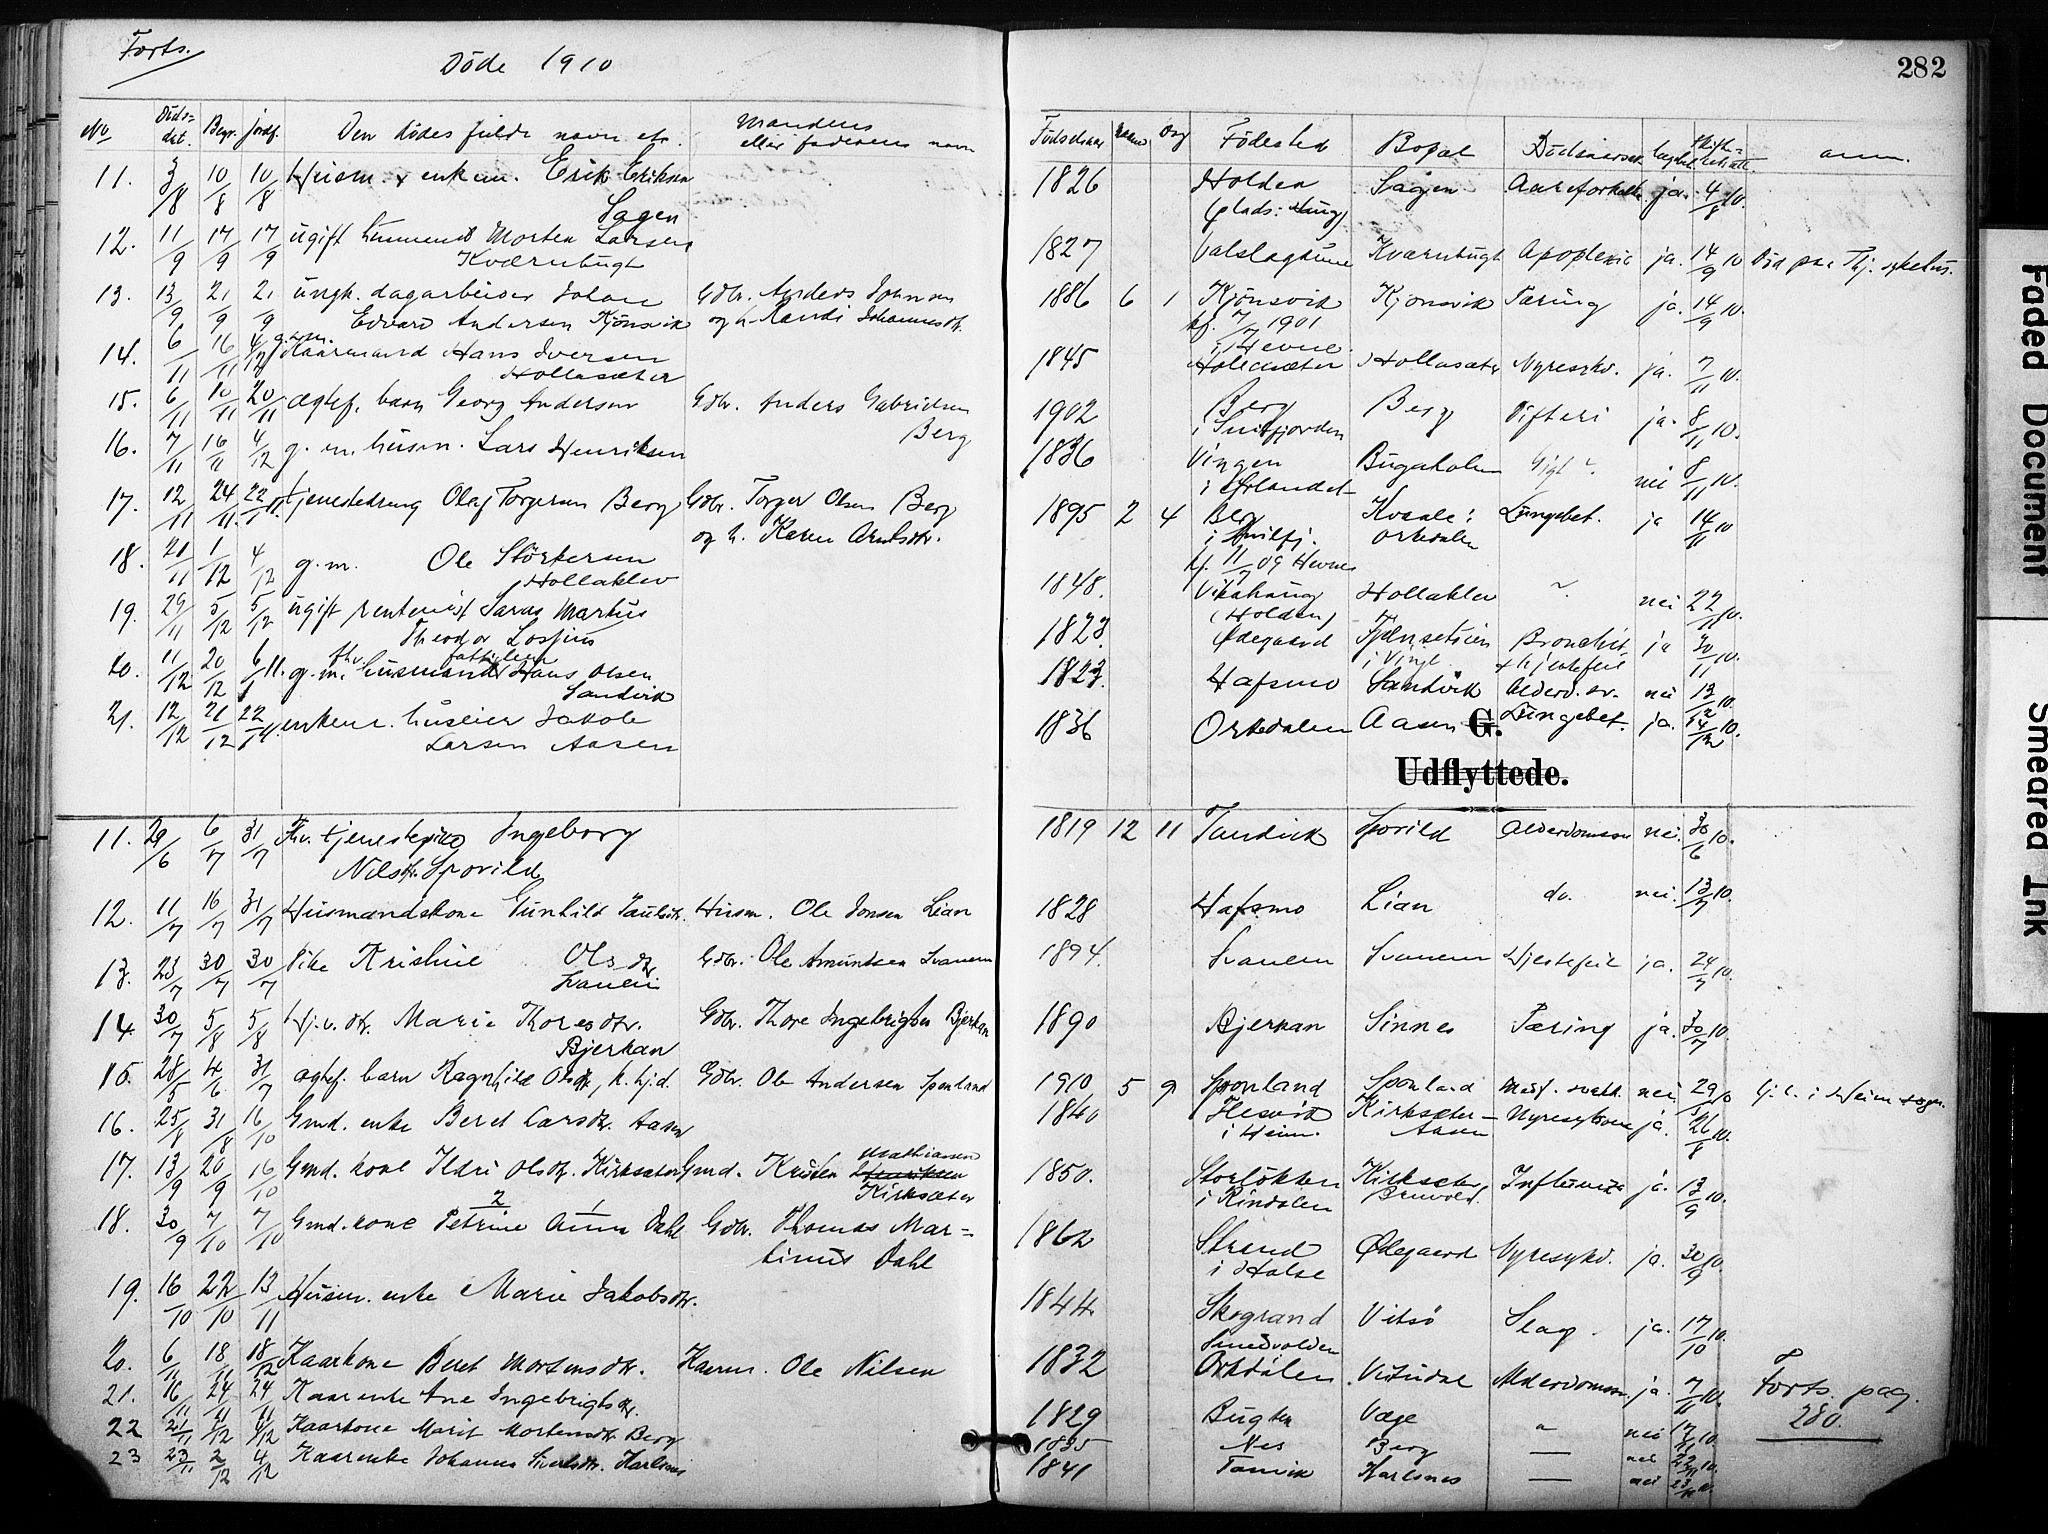 Forts.
Döde 1910
282
No Döds-dat. Begr. jordf. Den dödes fulde navn etc. Mandens eller faderens navn Födselsaar Maaned Dag Födested Bopæl Dödsaarsak Lægebeh. Skifte-ret anm.
11. 3/8 10/8 10/8 Husm. & enkem. Erik Eriksen 1826 Holden Sagen ja. 4/8 10.
Sagen (plads: Haug)
12. 11/9 17/9 17/9 ugift Morten Larsen 1827 Valslagbugt Kværnbugt Apoplexie ja. 14/9 10 Död paa Thj. sykehus.
Kværnbugt
13. 13/9 21/9 21/9 ungk. dagarbeider Johan Gdbr. Anders Johnsen 1886 6 1 Kjönsvik Kjönsvik Tæring ja. 14/9 10.
Edvard Andersen Kjönsvik og h. Randi Johannesdtr. kf. 7/7 1901
i Hevne.
14. 6/11 16/11 4/12 g.m. Kaarmand Hans Iversen 1845 Hollasæter Hollasæter Nyresykd. ja. 7/11 10.
Hollasæter
15. 6/11 10/11 20/11 ægtef. barn Georg Andersen Gdbr. Anders Gabrielsen 1902 Berg Berg Difteri ja. 8/11 10.
Berg i Snilfjorden
16. 7/11 16/11 4/12 g. m. husm. Lars Henriksen 1836 Vingen Bugaholmen Gigt nei 8/11 10.
i Örlandet
17. 12/11 24/11. 22/1 11. tjenestedreng Olaf Torgersen Berg Gdbr. Torger Olsen Berg 1895 2 4 Berg Kvaale i Lungebet. ja 14/11 10
og h. Karen Arntsdtr. i Snilfj. Orkedalen
kf. 11/7 09 Hevne
18. 20/11 1/12 4/12 g.m. Ole Störkersen 1848. Vikahaug Hollaklev nei 22/11 10.
Hollaklev (Holden)
19. 29/11 5/12 5/12 ugift rentenist Martus 1823. Ödegaard Bronchit ja 30/11 10.
Theodor Lossius i Vinje & hjertefeil
20. 11/12 20/12 6/1 11. g.m. fhv. husmand fattiglem Hans Olsen 1823. Hafsmo Sandvik Alderd.sv. nei 13/12 10.
Sandvik
21. 12/12 21/12 22/1 11. enkem. husleier Jakob 1836 Orkedalen Aasen Lungebet. ja. 14/12 10.
Larsen Aasen
G.
Udflyttede.
11. 29/6 6/7 31/7 Fhv. tjenestepike Ingeborg 1819 12 11 Sporild Alderdomssv nei. 30/6 10.
Nilsdtr. Sporild
12. 11/7 16/7 31/7 Husmandskone Gunhild Paulsdtr. Husm. Ole Jonsen Lian 1828 Hafsmo Lian do. nei. 13/7 10.
13. 23/7 30/7 30/7 Pike Kristine Olsdtr Gdbr. Ole Amundsen Svanem 1894. Svanem Svanem Hjertefeil ja. 24/7 10.
Svanem
14. 30/7 5/8 5/8 Hj.v. dtr. Marie Thoresdtr. Gdbr. Thore Ingebrigtsen Bjerkan 1890 Bjerkan Sinnes Tæring ja. 30/7 10.
Bjerkan
15. 28/5 4/6 31/7 ægtef. barn Ragnhild Olsdtr, h. hj.d. Gdbr. Ole Andersen Spenland 1910 5 9 Spenland Spenland Medf. svakh. nei 29/5 10 hj.d. i Heim sogn.
16. 25/8 31/8 16/10 Gmd. enke Beret Larsdtr. Aasen 1840 Hesvik Kirksæter- Nyresykdom ja. 26/8 10.
i Heim. Aasen
17. 13/9 20/9 16/10 Gmd. kone Ildri Olsdtr. Kirksæter Gmd. Kristen Mathiassen Henriksen 1850. Storlökken Kirksæter, Influenza ja. 13/9 10.
Kirksæter i Rindalen
18. 30/9 7/10 7/10 Gmd. kone Petrine Anna Dahl Gdbr. Thomas Mar- 1862 Strand Ödegaard Nyresykd. ja. 30/9 10.
2 1
tinus Dahl i Halse
19. 16/10 22/10 13/11 Husm. enke Marie Jakobsdtr. 1844. Skogrand Vitsö Slag ja. 17/10 10.
Smedvolden
20. 6/11 18/11 18/12 Kaarkone Beret Mortensdtr. Kaarm. Ole Nilsen 1832 Orkdalen Vitsudal Alderdomssv. ja. 7/11 10. Forts. pag.
21. 16/11 24/11 24/11 Kaarenke Ane Ingebrigtsdtr. 1829 Bugten Vage " nei 17/11 10. 280.
22 21/11 1/12 4/12 Kaarkone Marit Mortensdtr Berg 1835 Nes Berg — nei 22/11 10.
23 23/11 2/12 4/12 Kaarenke Johanna Sivertsdtr. Karlsnes 1841 Tannvik Karlsnes — nei 23/11 10.